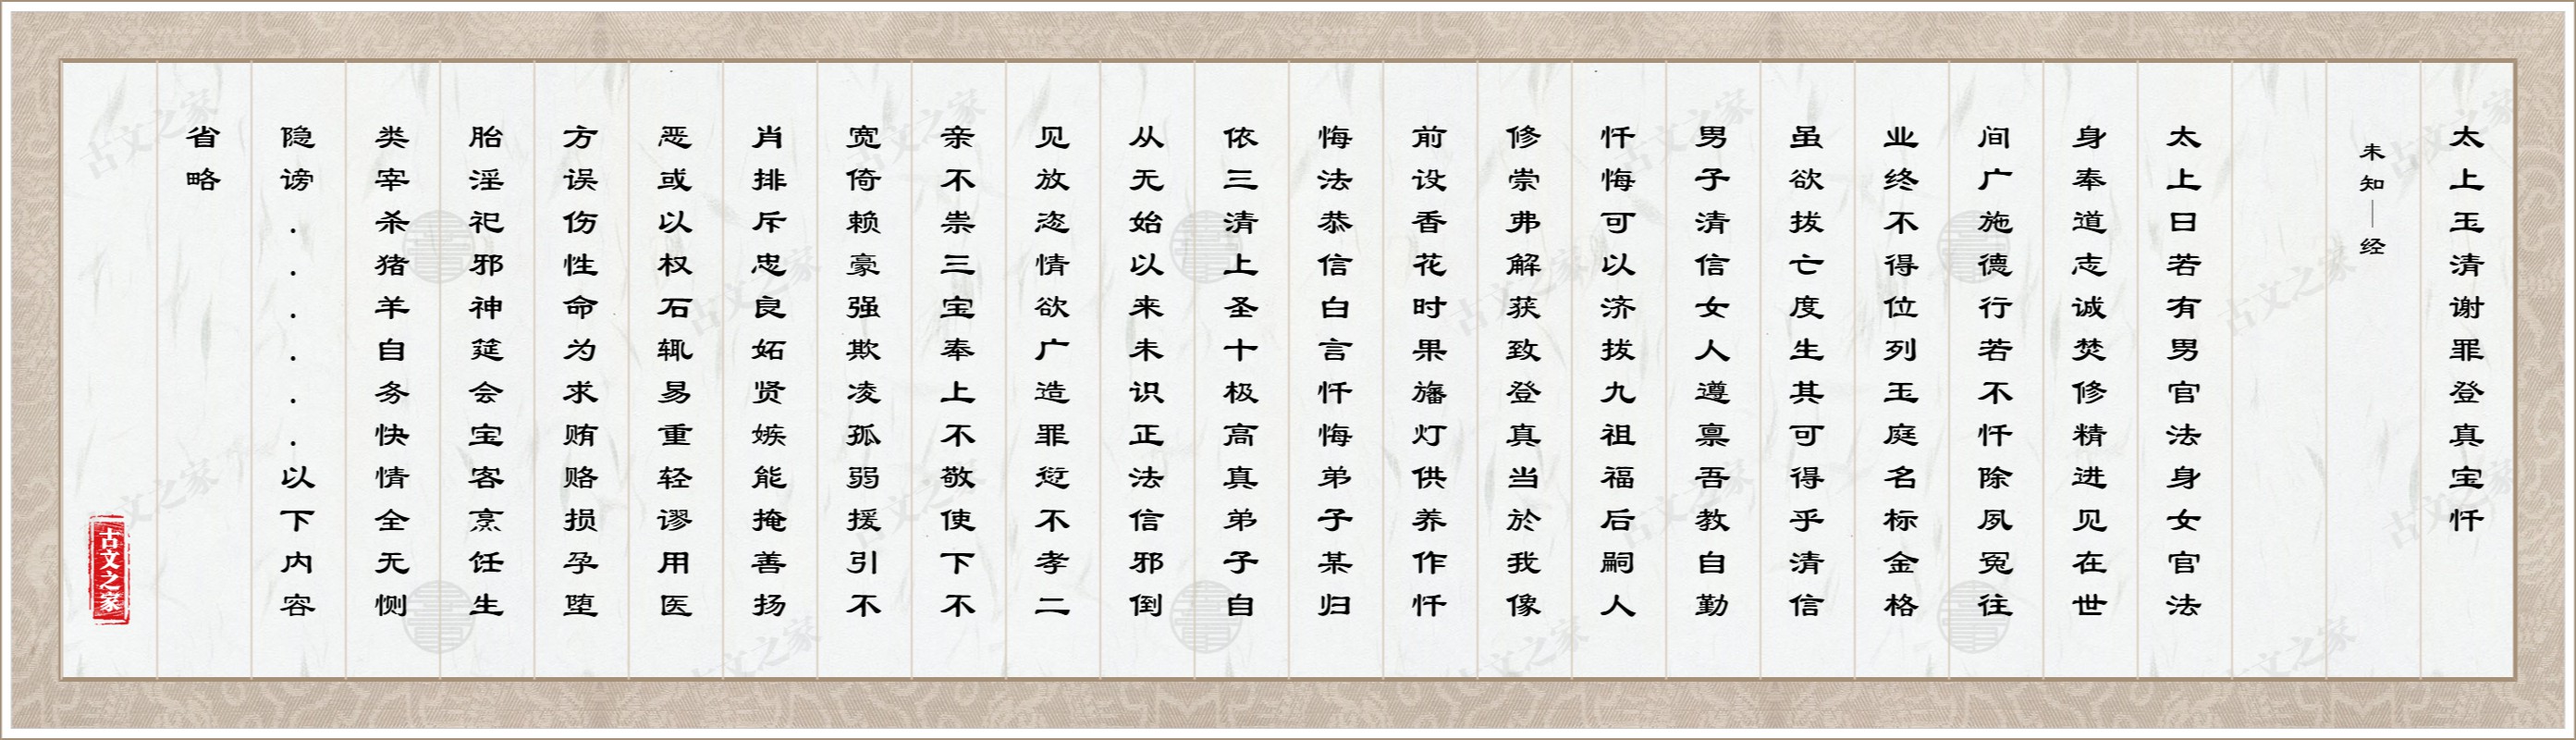 太上玉清谢罪登真宝忏
未知—经
太上曰若有男官法身女官法
身奉道志诚焚修精进见在世
间广施德行若不忏除夙冤往
业终不得位列玉庭名标金格
虽欲拔亡度生其可得乎清信
男子清信女人遵禀吾教自勤
忏悔可以济拔九祖福后嗣人
修崇弗解获致登真当於我像
前设香花时果旛灯供养作忏
悔法恭信白言忏悔弟子某归
依三清上圣十极高真弟子自
从无始以来未识正法信邪倒
见放恣情欲广造罪愆不孝二
亲不祟三宝奉上不敬使下不
宽倚赖豪强欺凌孤弱援引不
肖排斥忠良妬贤嫉能掩善扬
恶或以权石辄易重轻谬用医
方误伤性命为求贿赂损孕堕
胎淫祀邪神筵会宝客烹饪生
类宰杀猪羊自务快情全无恻
隐谤......以下内容
省略
古文之家